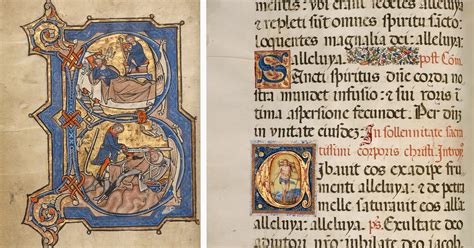 B
erant sedetes alleluya
& repleti sut omnes spiritu sacto
loquentes magnalia dei: alleluya:
alleluya. post Com
Sancti spiritus dne corda no
stra mundet infusio: & sui roris i
tima aspersione fecundet. Per dnz
in unitate eiusdez: In sollenitate sacra
tissimi corporis christi. Introy
Cibauit eos exadipe fru
menti alleluya: & de petra
melle saturauit eos al
leluya. alleluya. ps. Exultate deo